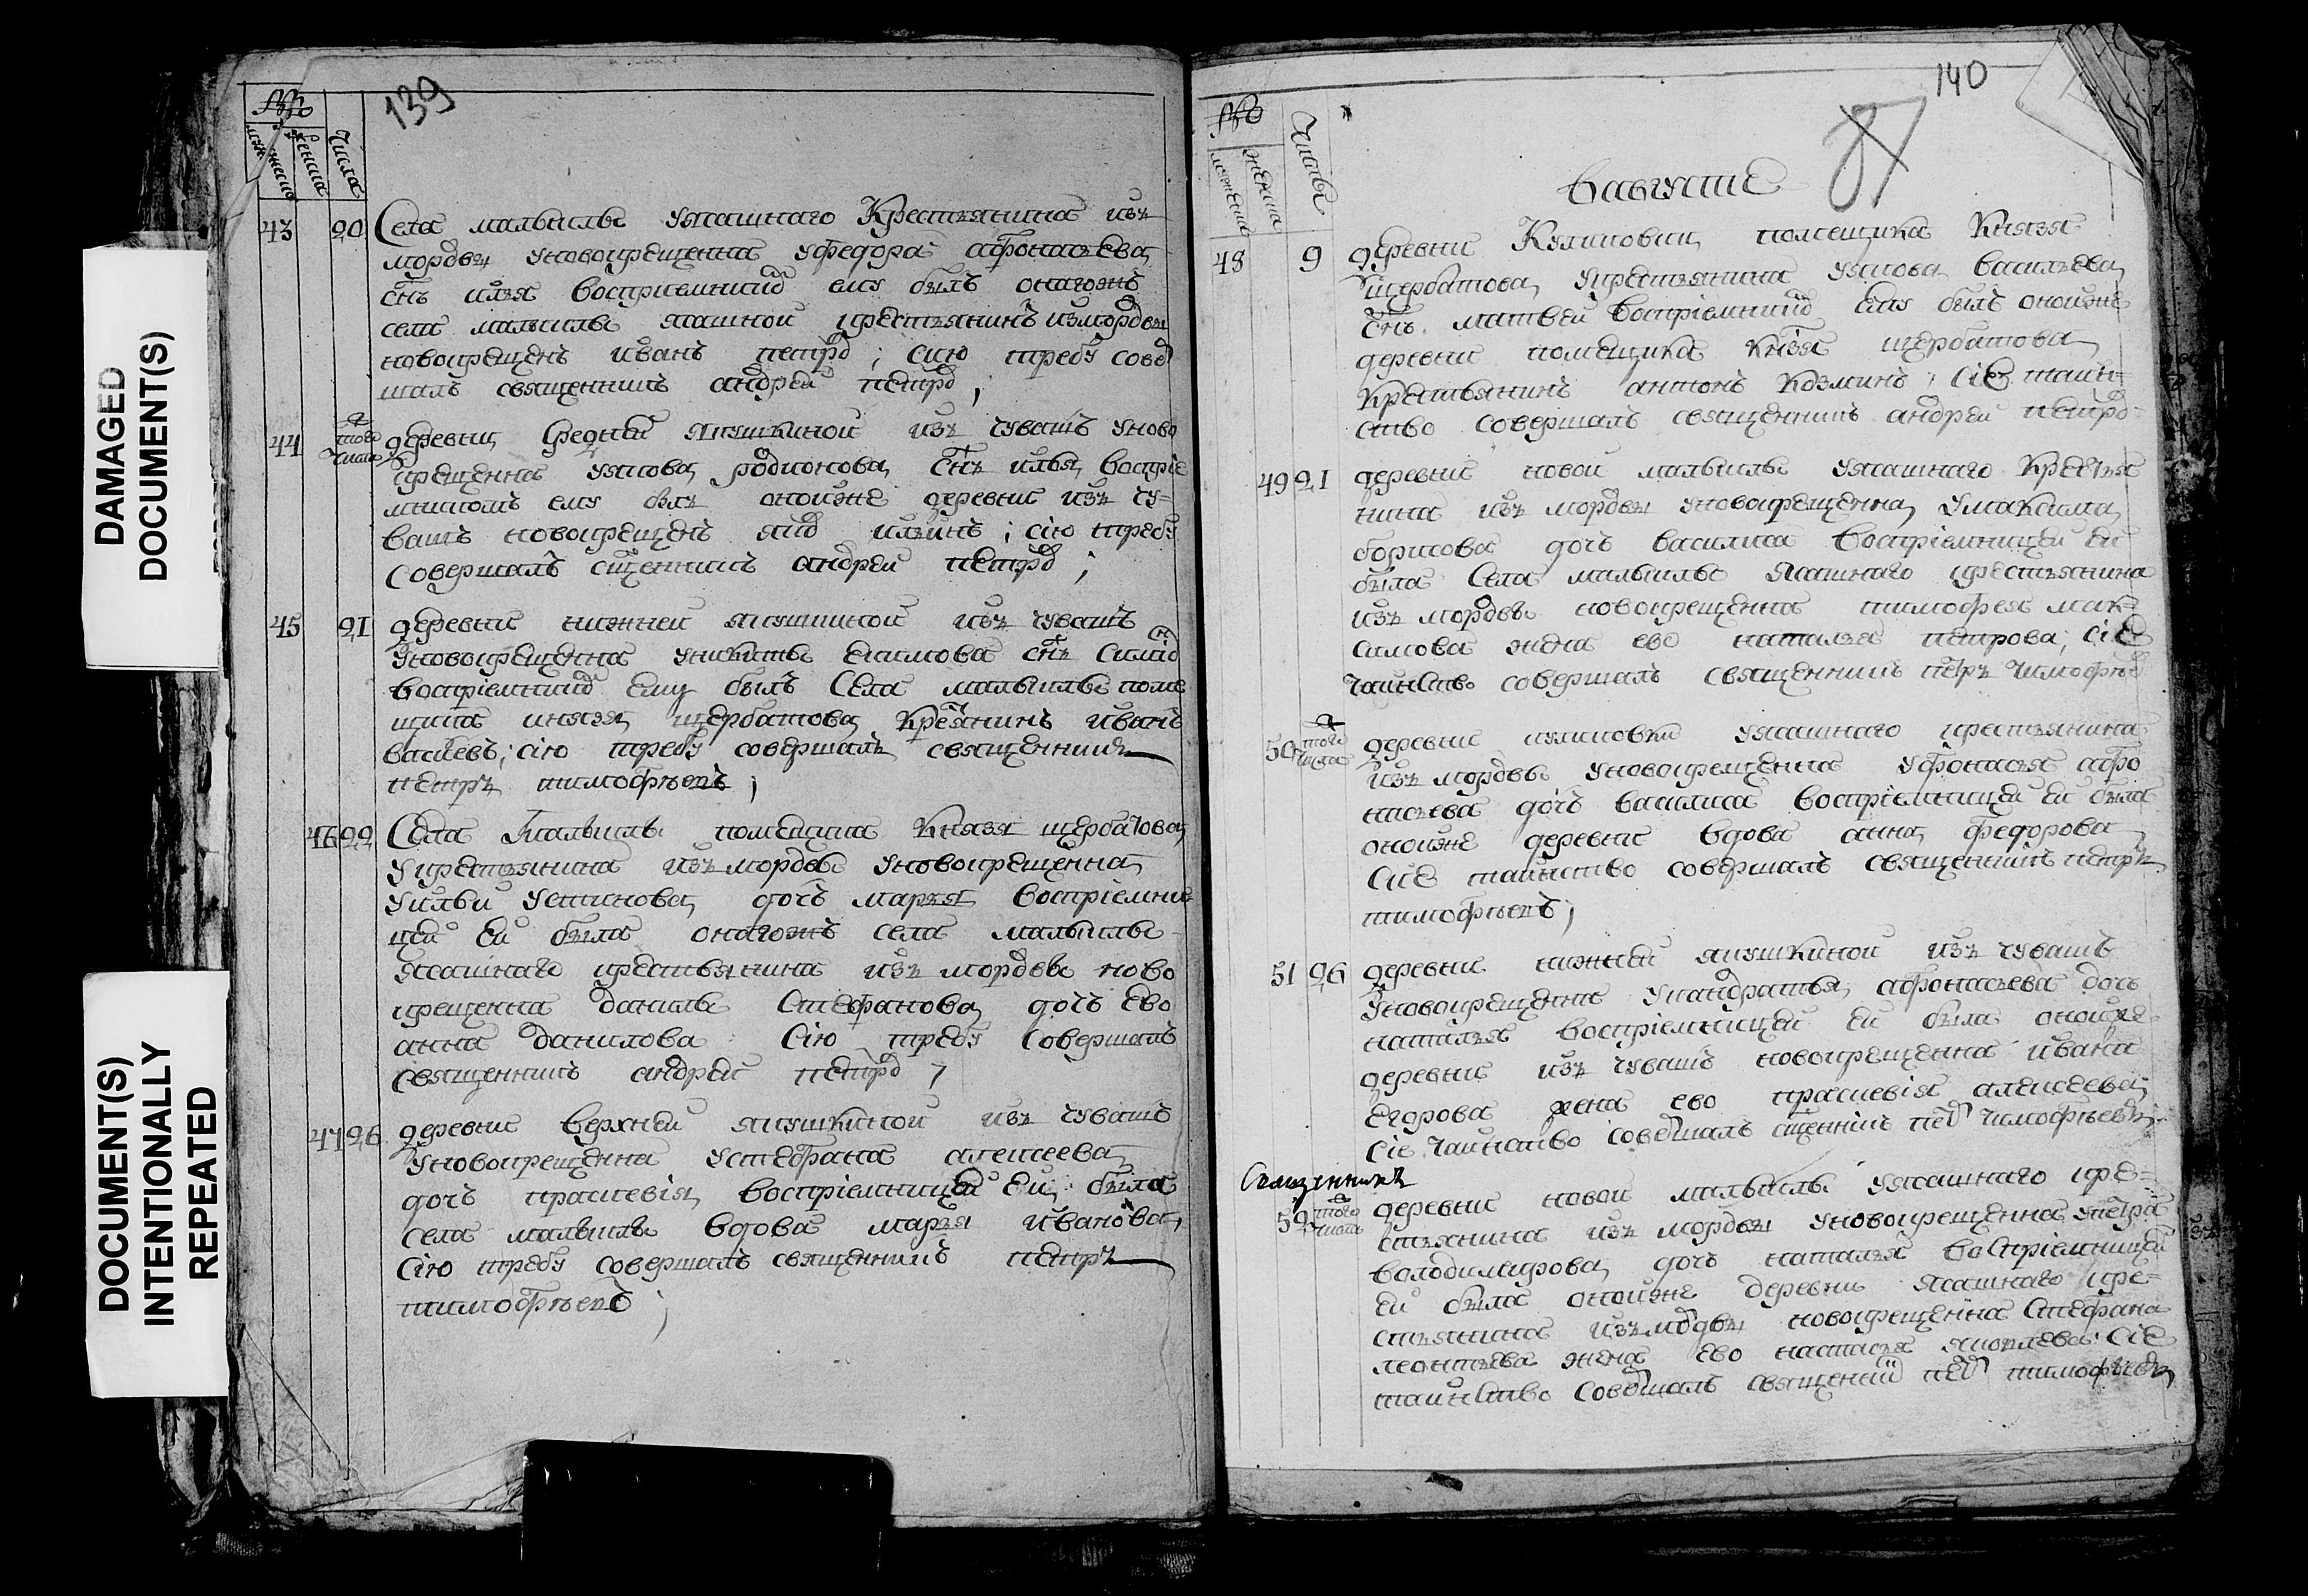 DAMAGED
DOCUMENT(S)
DOCUMENT(S)
INTENTIONALLY
REPEATED
139
№
мужеска
женска
Числа
43 20 Села малыклы уясашнаго Крестьянина изъ
мордвы уновокрещенна уфедора афонасьева
снъ илья воспрiемникъ ему былъ онагожъ
села малыклы ясашной крестьянинъ измордвы
новокрещенъ иванъ петро; сию требу совер
шалъ священникъ андреи петро;
44 того Числа деревни средней якушкиной изъ чувашъ уново
крещенна уякова родионова снъ илья воспрiе
мникомъ ему былъ оноижже деревни изъ чу=
вашъ новокрещенъ яко ильинъ; сiю требу
совершалъ сщенникъ андреи петро;
45 21 деревни нижней якушкиной изъ чувашъ
уновокрещенна уникиты екимова снъ симио
воспрiемникъ ему былъ Села малыклы поме
щика князя щербатова Крестьянинъ иванъ
васиевъ; сiю требу совершалъ священникъ
петръ тимофѣевъ;
46 22 Села Малыклы помещика Князя щербатова
укрестьянина изъ мордвы уновокрещенна
уильи устинова дочь марья воспрiемни
цеи еи была онагожъ села малыклы
ясашнаго крестьянина изъ мордвы ново
крещенна данилы Стефанова дочь ево
анна данилова сiю требу совершалъ
священникъ андреи петро;
47 26 деревни верхней якушкиной изъ чувашъ
уновокрещенна устефана алексеева
дочь праскевiя воспрiемницеи еи была
села малыклы вдова марья иванова,
сiю требу совершалъ священникъ петръ
тимофѣевъ;
140
87
№
мужеска
женска
Числы
Вавгусте
48 9 деревни Куликовки помещика Князя
щербатова укрестьянина уякова васильева
снъ матвеи воспрiемникъ ему былъ оноижъ
деревни помещика князя щербатова
Крестьянинъ антонъ козминъ; сiе таин=
ство совершалъ священникъ андреи петро=
49 21 деревни новой малыклы уясашнаго Крестья
нина изъ мордвы уновокрещенна умаксима
борисова дочь василиса воспрiемницеи еи
была Села малыклы ясашнаго крестьянина
изъ мордвы новокрещенна тимофея мак=
симова жена ево наталья петрова; сiе
таинство совершалъ священникъ петръ тимофѣе
50 того числа деревни куликовки уясашнаго крестьянина
изъ мордвы уновокрещенна уфонасья афо
насьева дочь василиса воспрiемницеи еи была
оноиже деревни вдова анна федорова
сие таинство совершалъ священникъ петръ
тимофѣевъ;
51 26 деревни нижней якушкиной изъ чувашъ
уновокрещенна укандратья афонасьева дочь
наталья воспрiемницеи еи была оноиже
деревни изъ чувашъ новокрещенна ивана
егорова жена ево праскевiя алексеева
сiе таинство совершалъ сщенникъ петръ тимофѣевъ
Священникъ
52 того числа деревни новой малыклы уясашнаго кре=
стьянина изъ мордвы уновокрещенна упетра
володимирова дочь наталья воспрiемницеи
еи была оноиже деревни ясашнаго кре=
стьянина изъ мордвы новокрещенна стефана
леонтьева жена ево настасья яковлева сiе
таинство совершалъ священникъ петръ тимофѣевъ